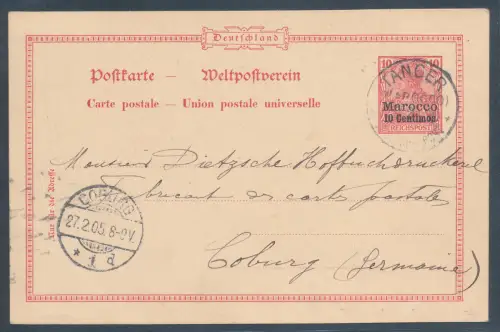 Deutschland
Postkarte — Weltpostverein
Carte postale — Union postale universelle
10 10
TANGER
(MAROCCO)
Marocco
10 Centimos
REICHSPOST
Monsieur Dietzsche Hofbuchdruckerei
Fabricant de cartes postales
Coburg (Germanie)
Nur für die Adresse
COBURG
27.2.05. 8-9V.
* 1 d